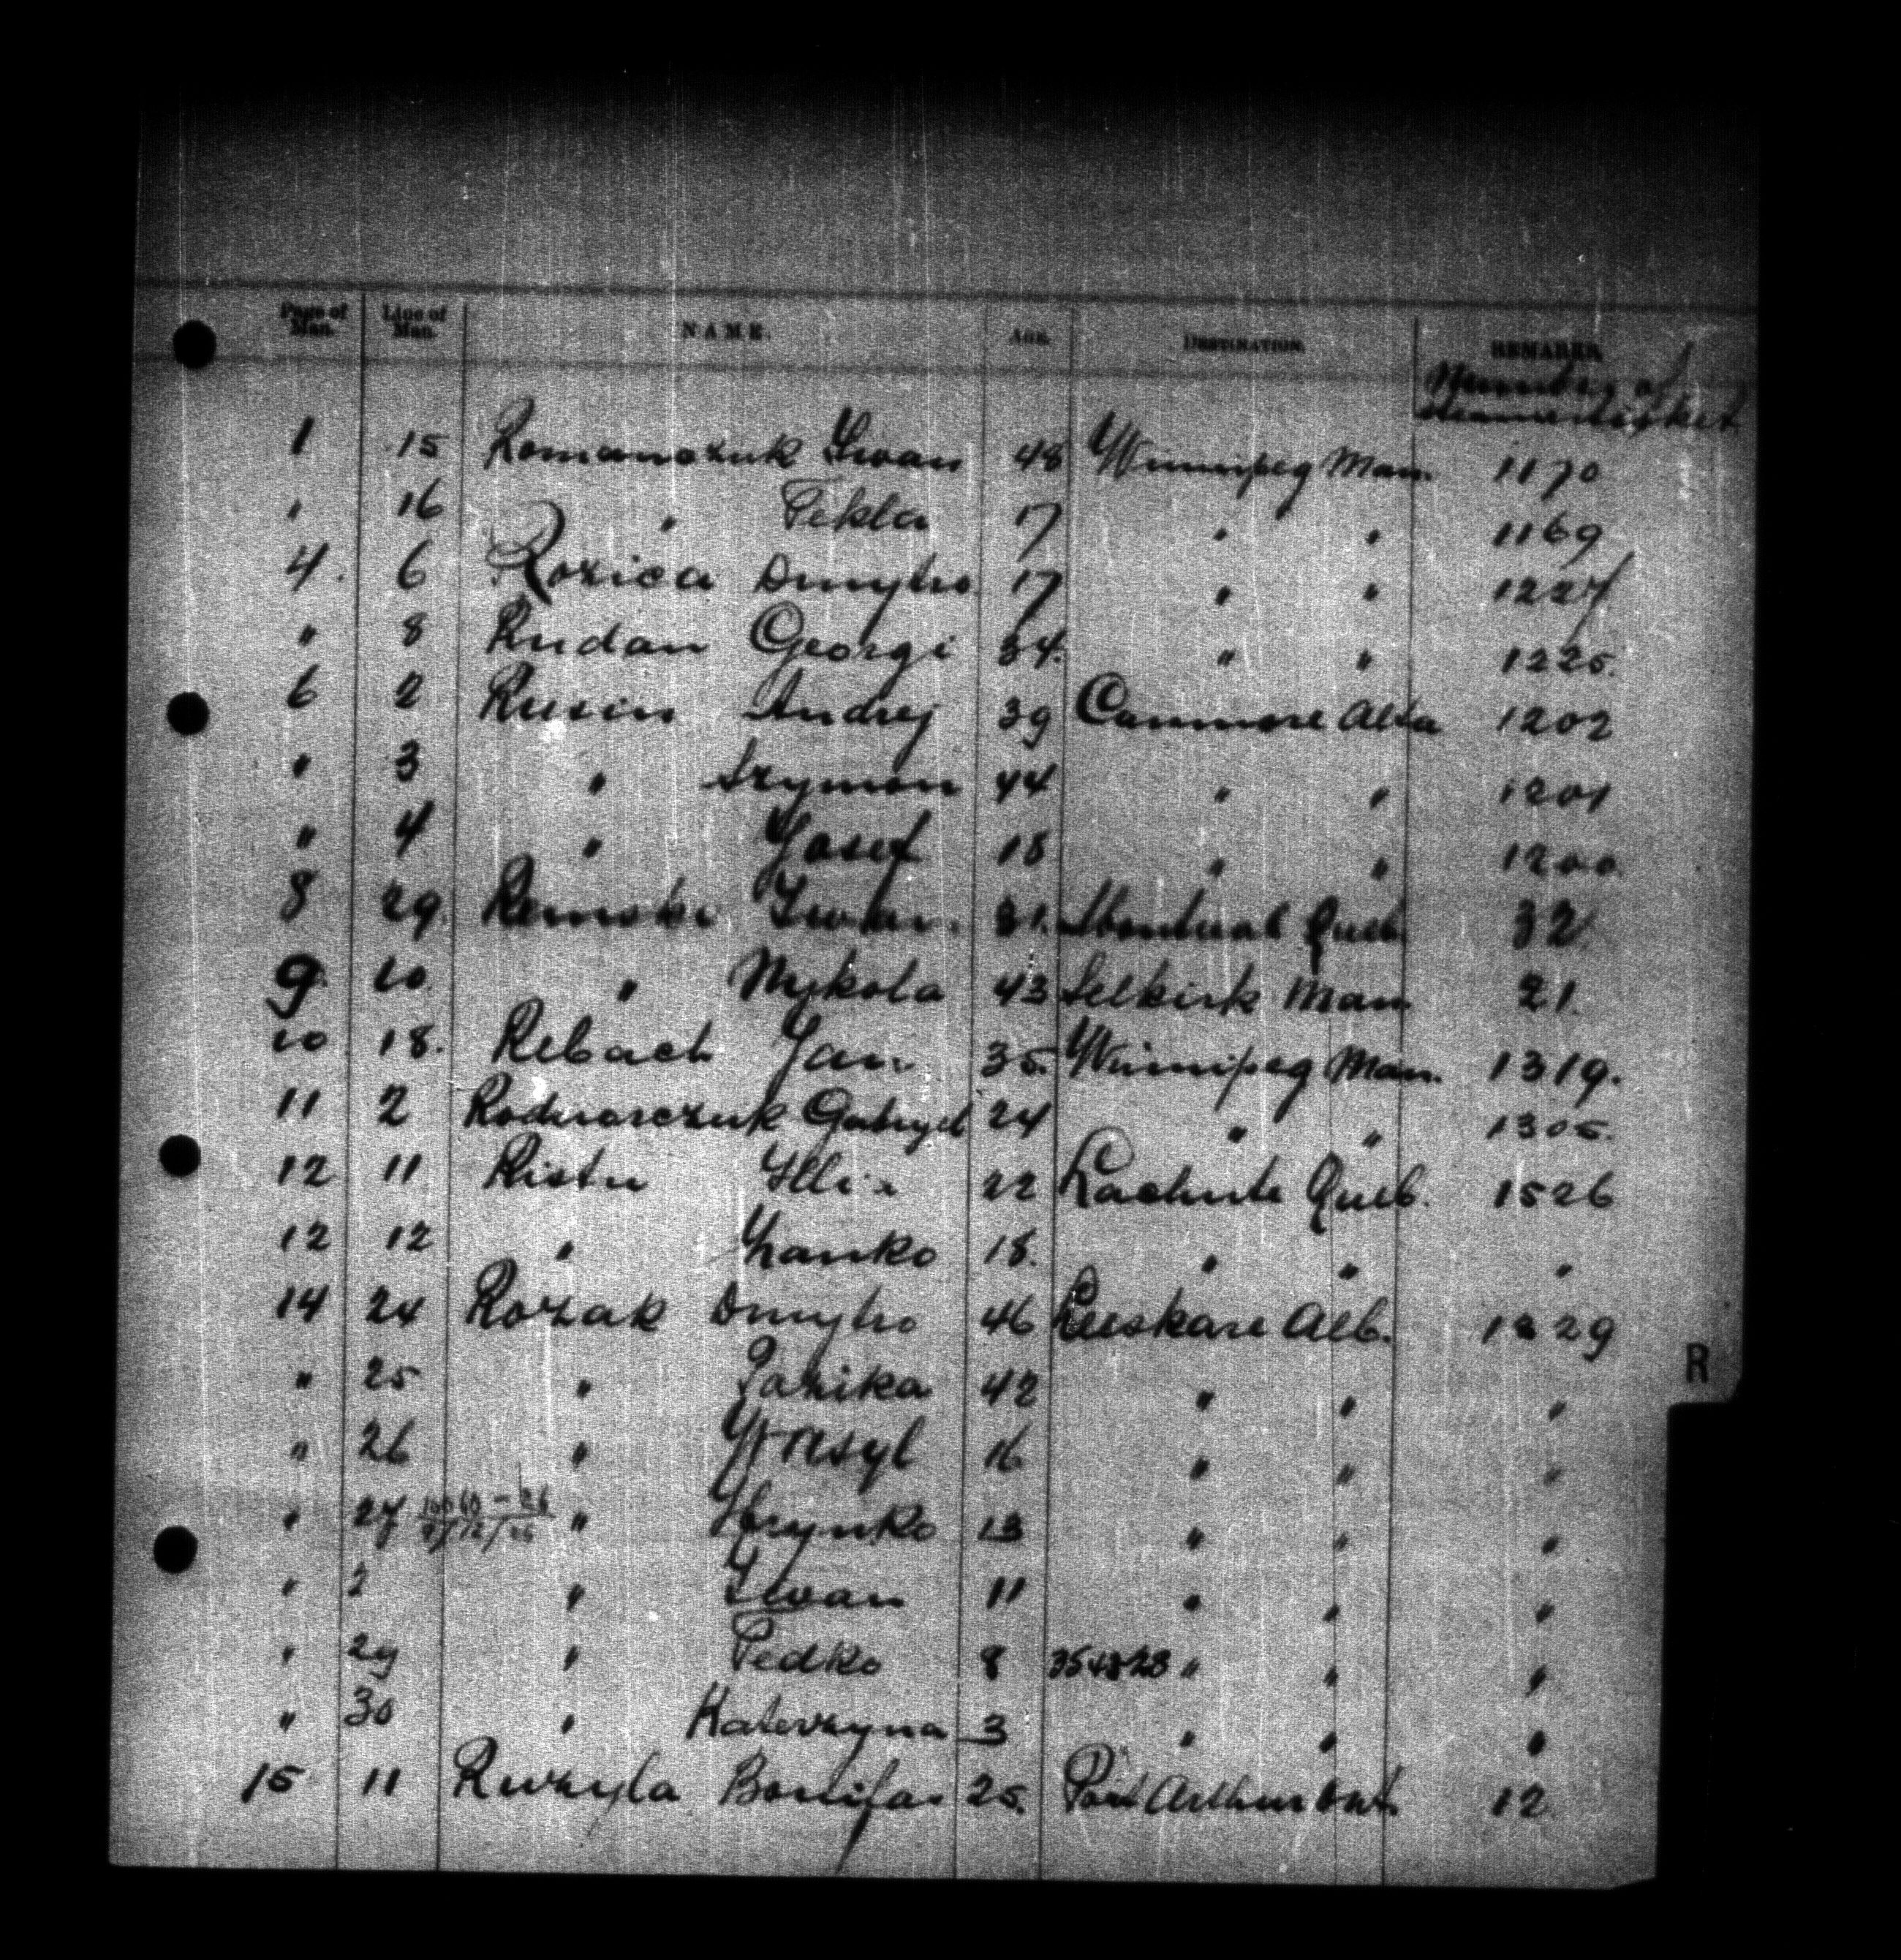 Page of Man. Line of Man. NAME. AGE. DESTINATION. REMARKS
Number of
1 15 Romanczuk Iwan 48 Winnipeg Man. 1170
" 16 " Tekla 17 " " 1169
4. 6 Rozica Dmytro 17 " " 1227
" 8 Rudan Georgi 34. " " 1225.
6 2 Rusin Andrej 39 Canmore Alta 1202
" 3 " Szymon 44 " " 1201
" 4 " Josef 18 " " 1200
8 29. Remski Iwan. 31. Montreal Queb. 32
9. 10. " Mykola 43 Selkirk Man 21.
10 18. Rebach Jan. 35. Winnipeg Man. 1319.
11 2 Gabryel 24 " " 1305.
12 11 Ristu Illia 22 Lachute Queb. 1526
12 12 " 18. " " "
14 24 Rozak Dmytro 46 Alb. 1229
" 25 " Parika 42 " " "
" 26 " Wasyl 16 " " "
" 27 " Hrynko 13 " " "
" 2 " Iwan 11 " " "
" 29 " Fedko 8 " " "
" 30 " Katerzyna 3 " " "
15 11 Bonifas 25. Port Arthur Ont. 12
R